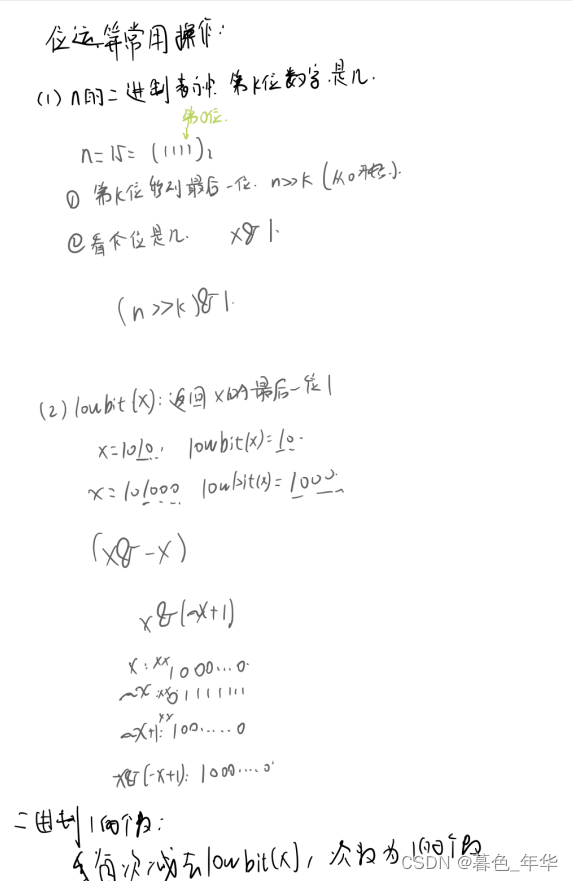 位运算常用操作:
(1) n的二进制表示中 第k位数字是几.
第0位.
n=15=(1111)₂
① 第k位移到最后一位. n>>k (从0开始).
②看个位是几. x&1.
(n>>k)&1.
(2) lowbit(x):返回x的最后一位1
x=1010, lowbit(x)=10.
x=101000 lowbit(x)=1000.
(x&-x)
x&(~x+1)
x:xx1000...0.
~x:xx01111111
~x+1:xx100.....0
x&(-x+1):1000....0
二进制1的个数:
每次减去lowbit(x), 次数为1的个数
CSDN @暮色_年华